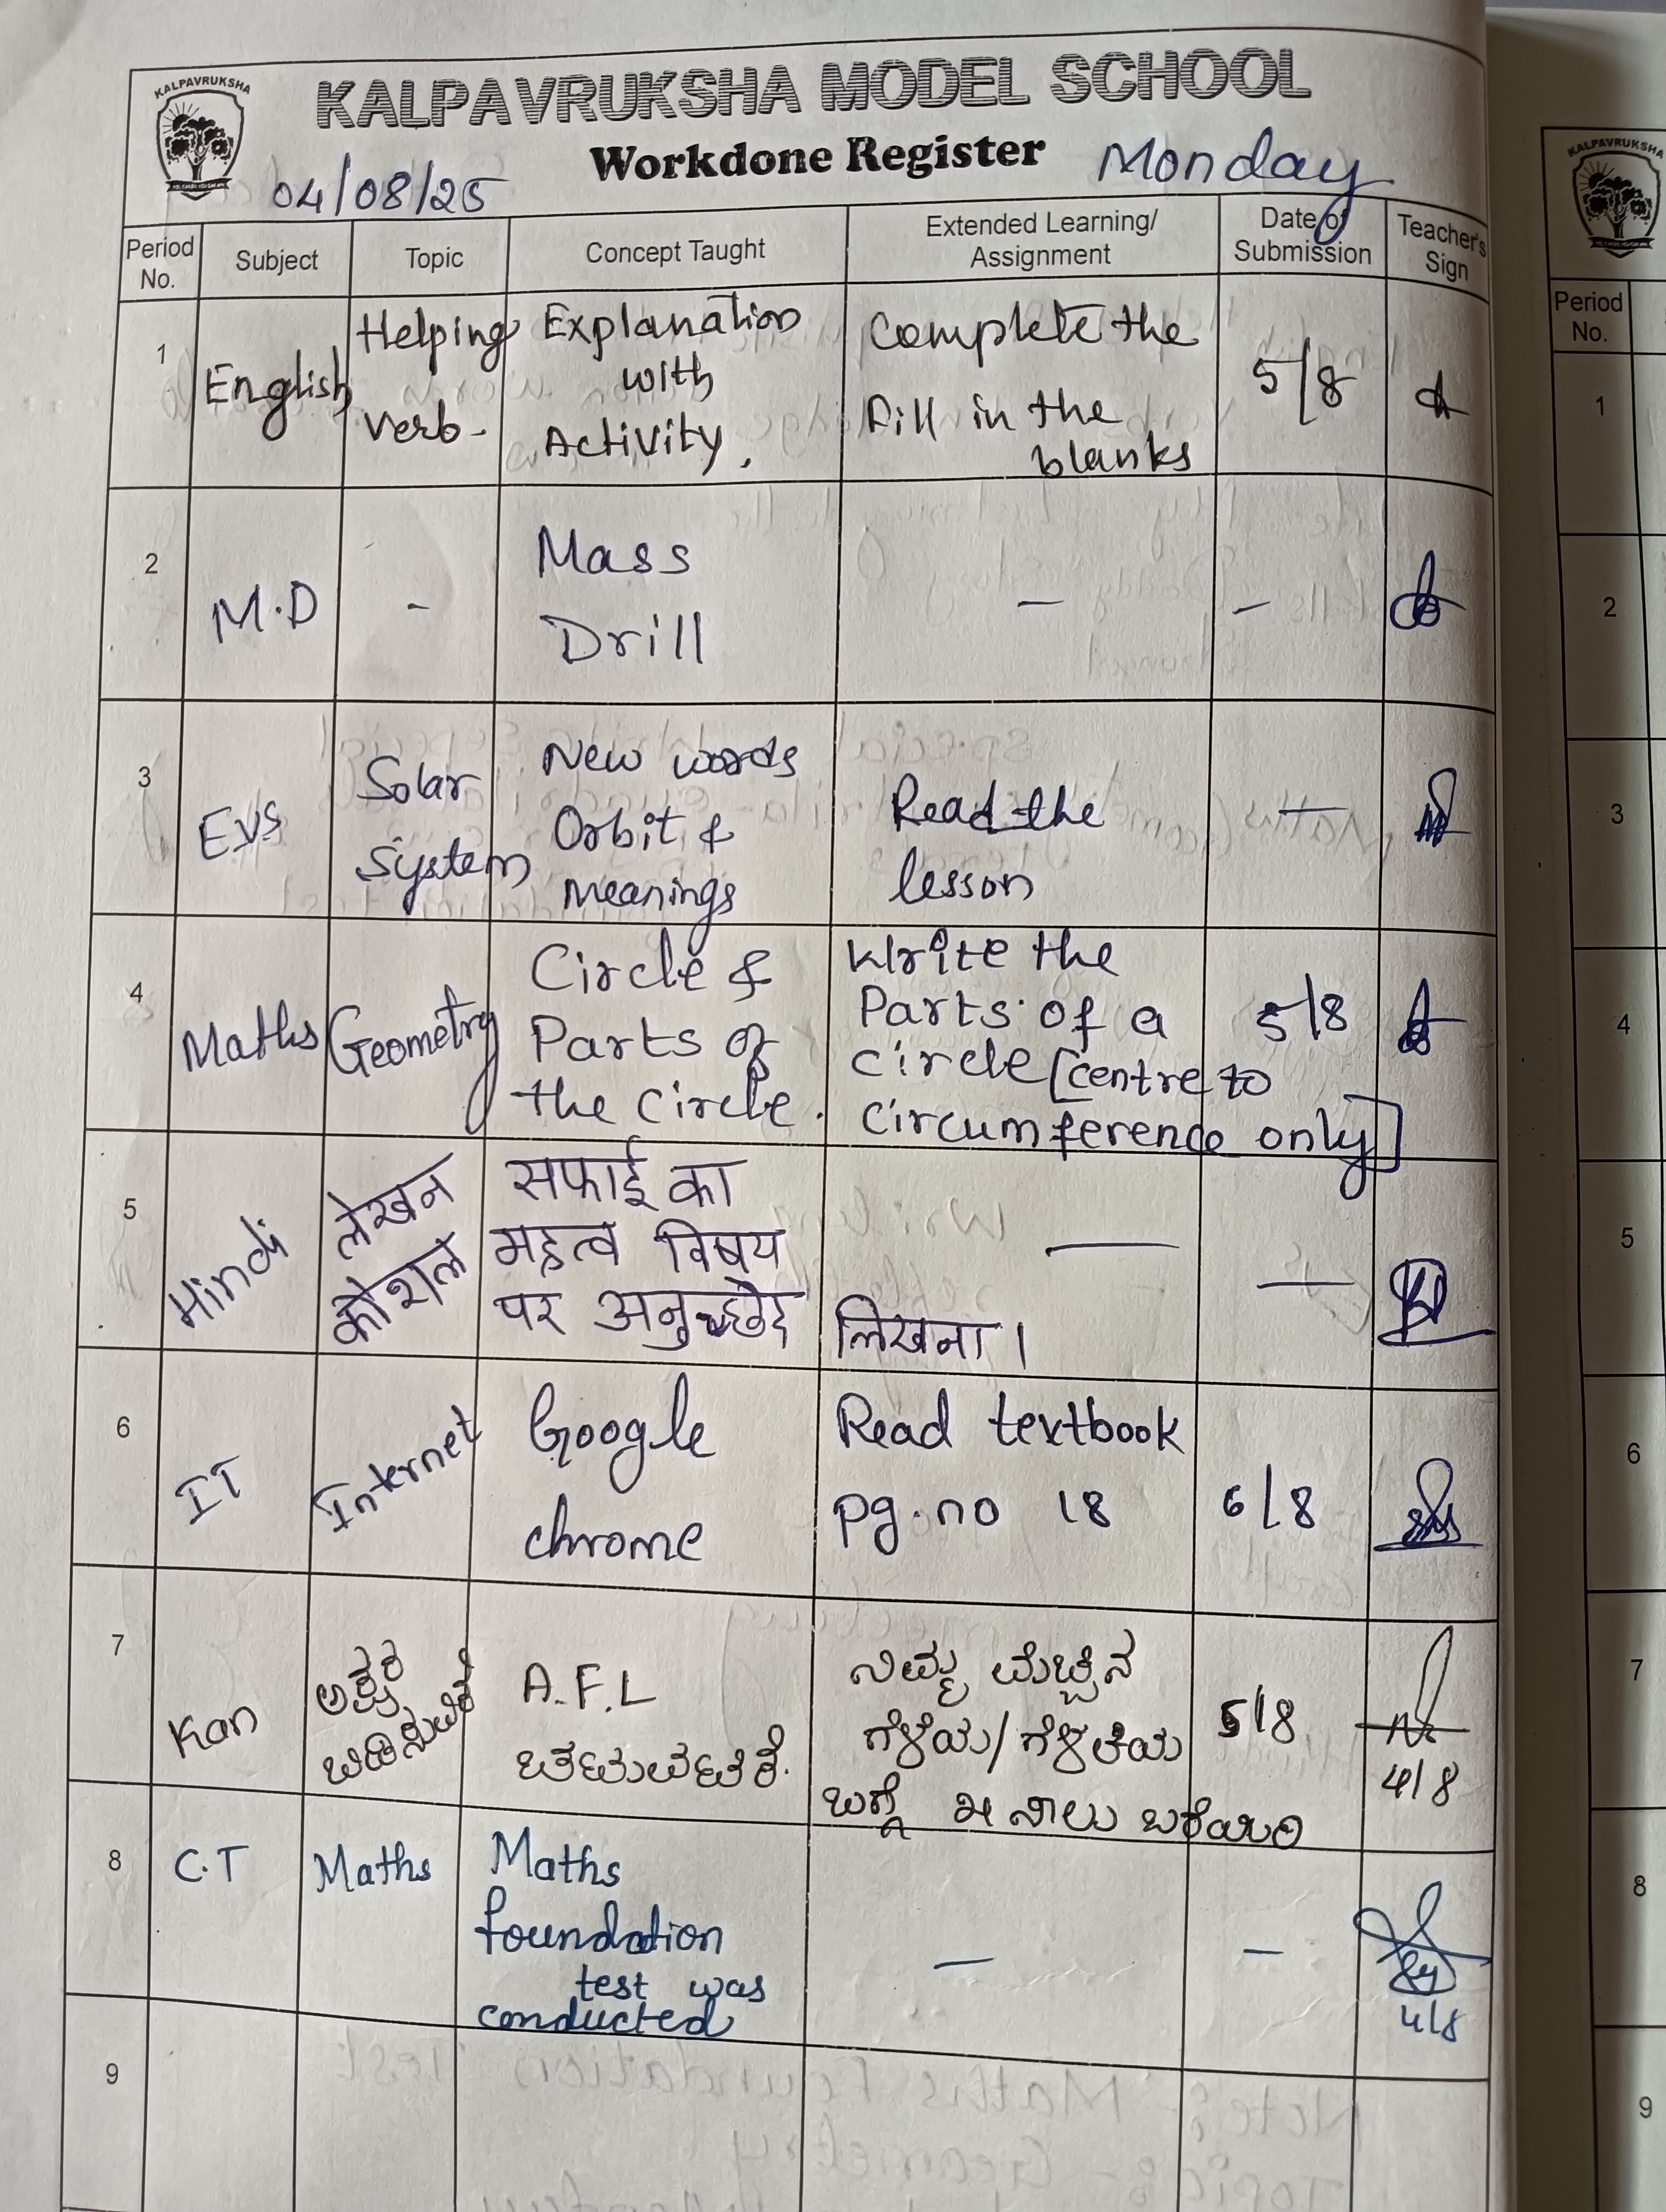 KALPAVRUKSHA
KALPAVRUKSHA MODEL SCHOOL
Workdone Register
04/08/25
Monday
Period No.
Subject
Topic
Concept Taught
Extended Learning/
Assignment
Date of
Submission
Teacher's
Sign
1
English
Helping
verb-
Explanation
with
Activity.
Complete the
fill in the
blanks
5/8
2
M.D
-
Mass
Drill
-
-
3
EVS
Solar
System
New words
Orbit &
meanings
Read the
lesson
-
4
Maths
Geometry
Circle &
Parts of
the circle.
Write the
Parts of a
circle [centre to
circumference only]
5/8
5
Hindi
लेखन
कौशल
सफाई का
महत्व विषय
पर अनुच्छेद
लिखना।
-
-
6
IT
Internet
Google
chrome
Read textbook
pg.no 18
6/8
7
Kan
A.F.L
ಚಟುವಟಿಕೆ.
ನಿಮ್ಮ ಮೆಚ್ಚಿನ
ಗೆಳೆಯ/ಗೆಳತಿಯ
ಬಗ್ಗೆ ೫ ಸಾಲು ಬರೆಯಿರಿ
5/8
4/8
8
C.T
Maths
Maths
foundation
test was
conducted
-
-
4/8
9
KALPAVRUKSHA
Period
No.
1
2
3
4
5
6
7
8
9